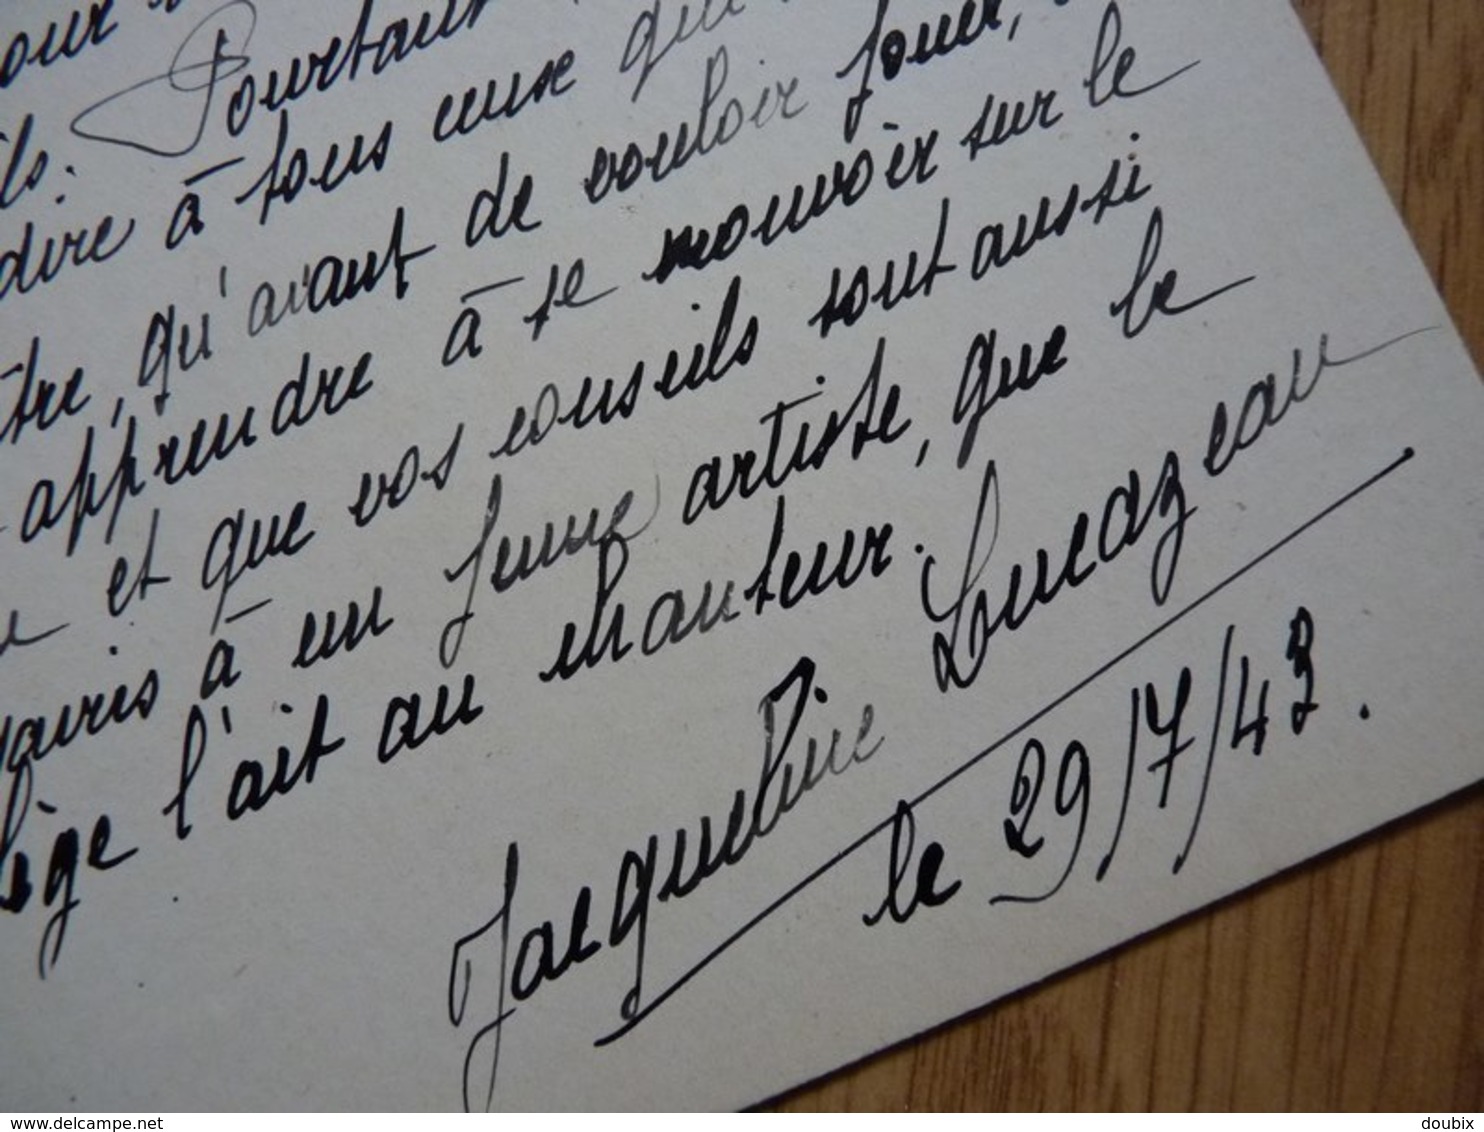 our
ils. Pourtant
dire à tous ceux qui
tre, qu'avant de vouloir jouer,
apprendre à se mouvoir sur le
et que vos conseils sont aussi
à un jeune artiste, que le
ège l'ait au chanteur.
Jacqueline Lucazeau
le 29/7/43.
www.delcampe.net
doubix